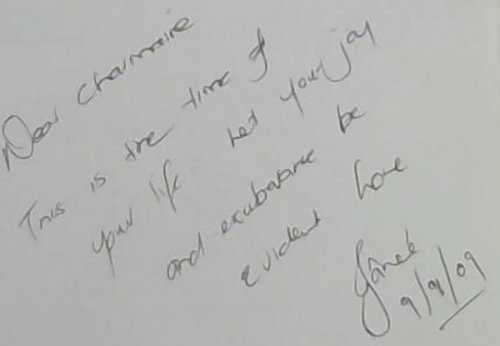 Dear Charmaine
This is the time of
your life Let your joy
and exuberance be
evident Love
Janet
9/9/09